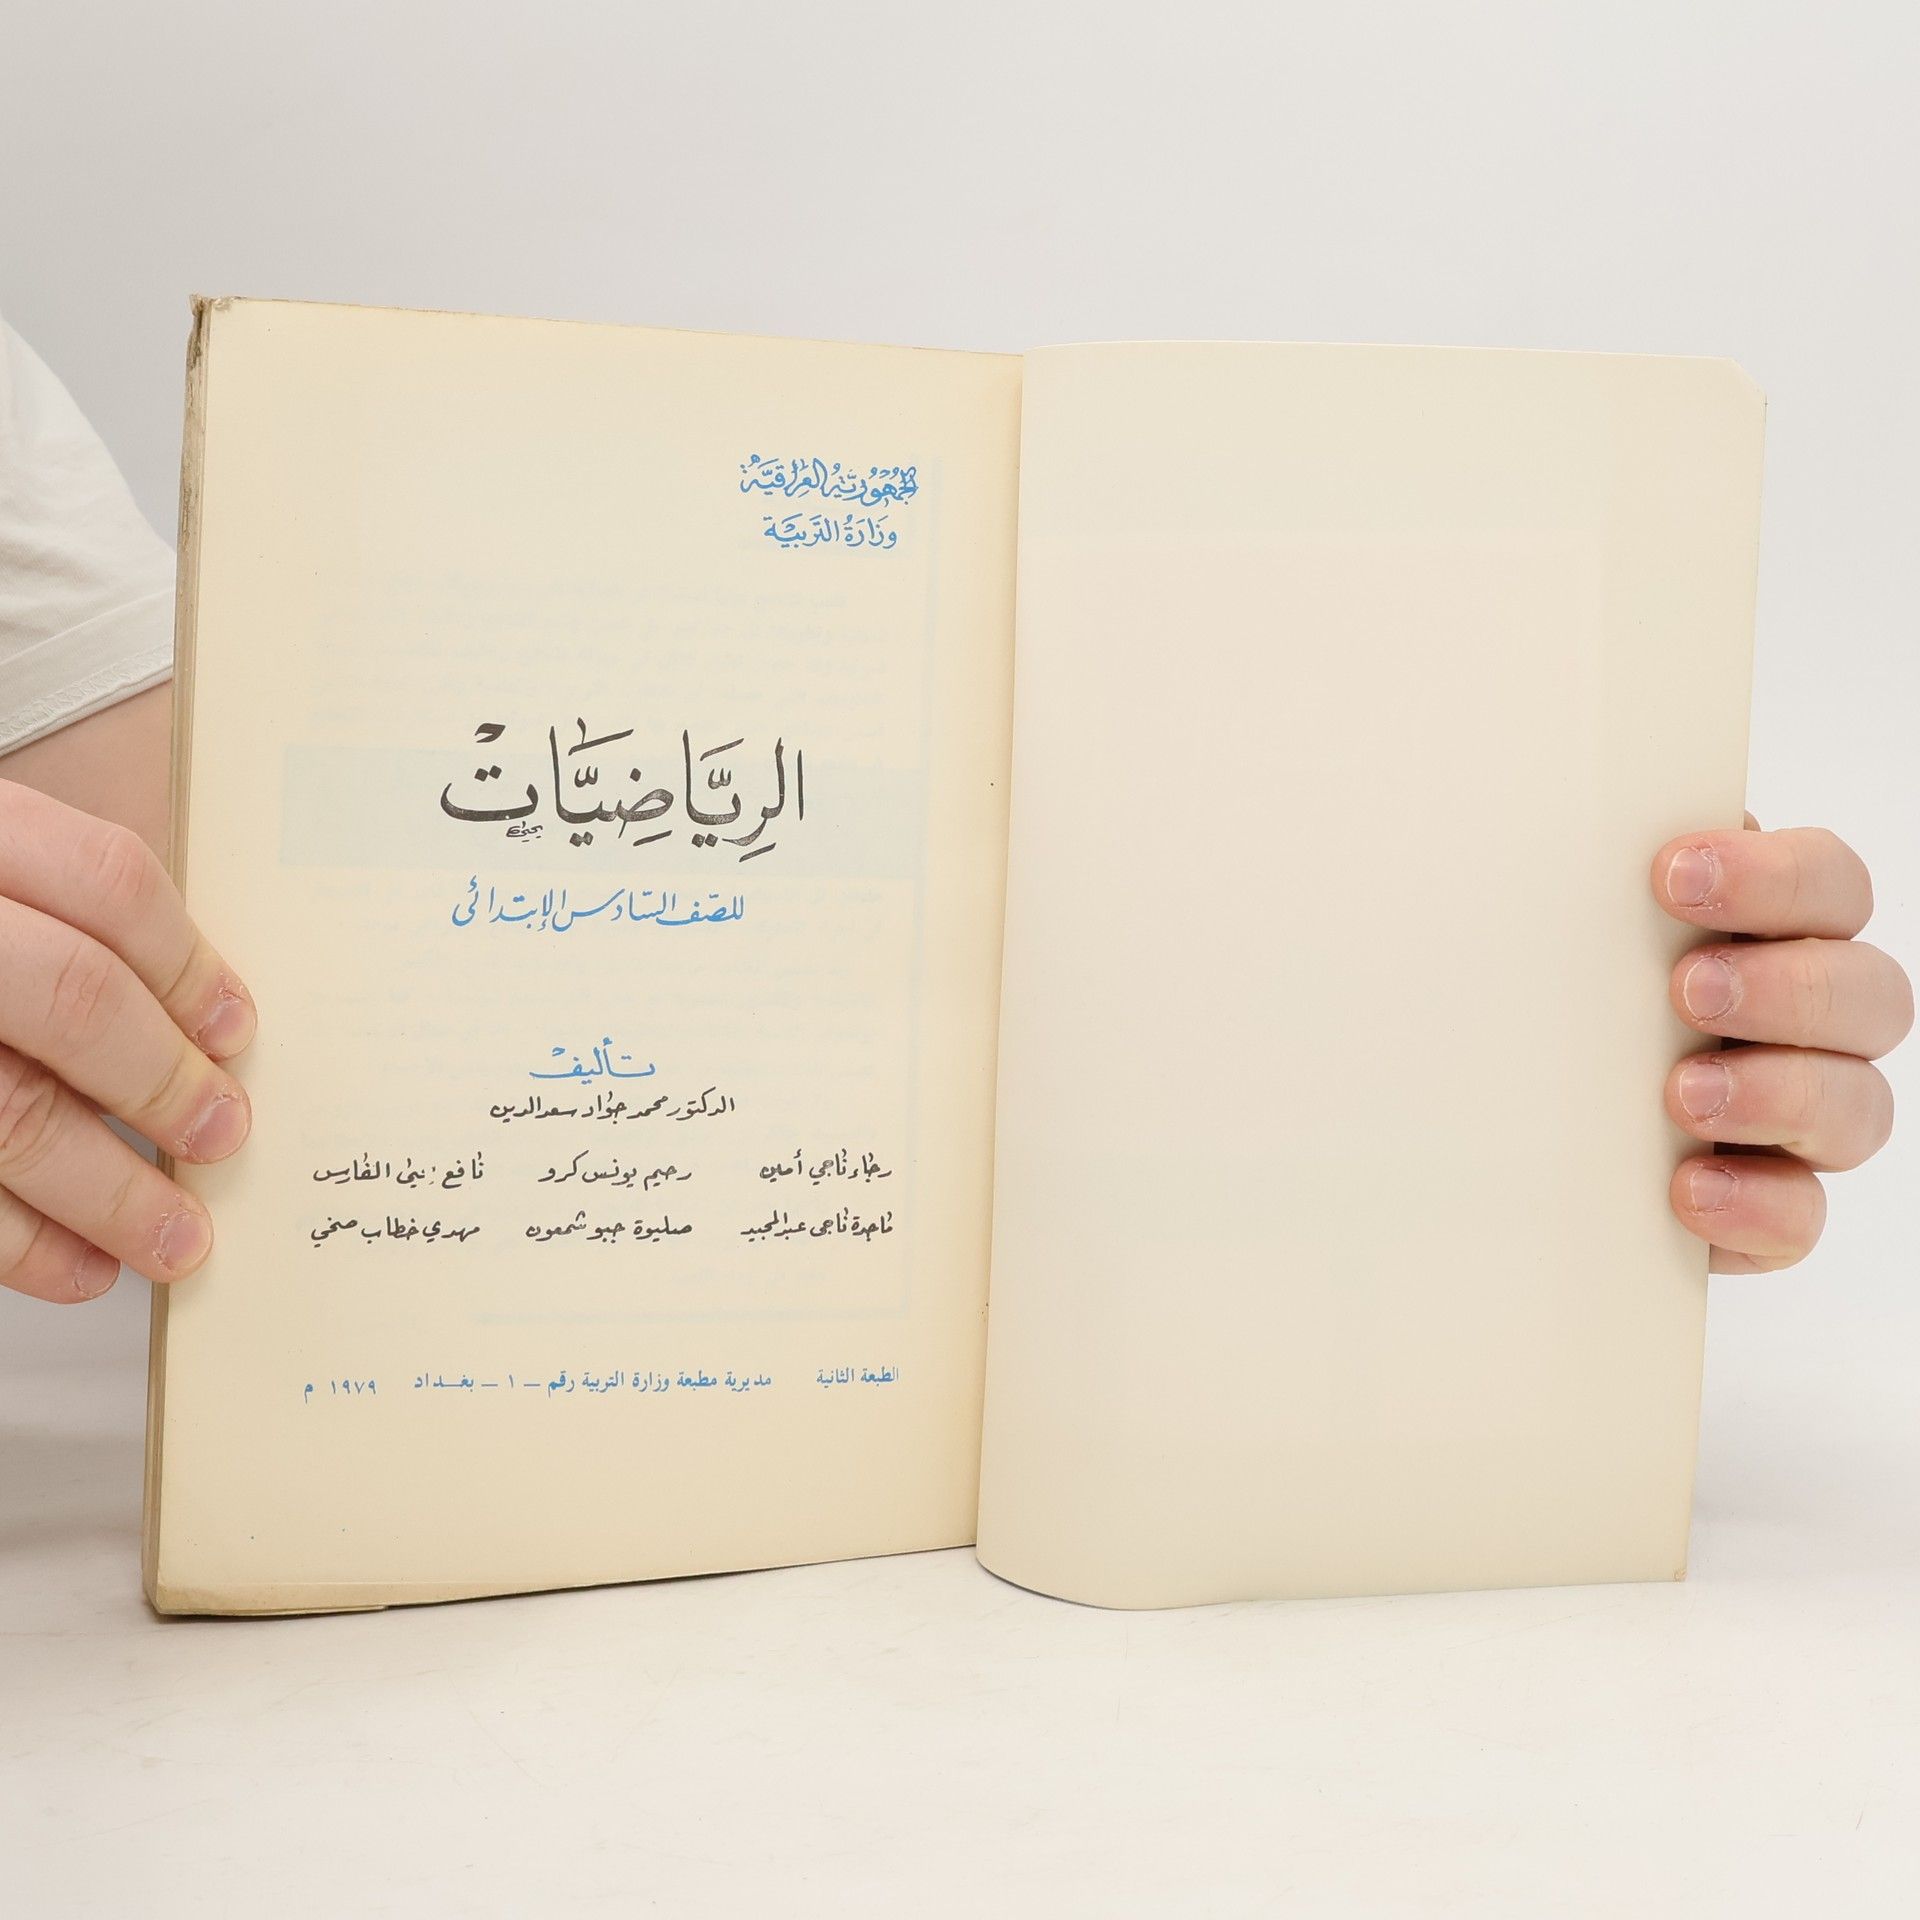 الجُمْهُوريَّةُ العِراقِيَّةُ
وَزَارَةُ التَّرْبَيَة
الرِيَّاضِيَّات
يحيى
للصّف السّادس الإبتدائى
تأليف
الدكتور محمد جواد سعد الدين
رجاء ناجي أمين رحيم يونس كرو نافع الفارس
ماجدة ناجى عبد المجيد صليوة جبو شمعون مهدي خطاب صخي
الطبعة الثانية مديرية مطبعة وزارة التربية رقم – ١ – بغـــداد ١٩٧٩ م